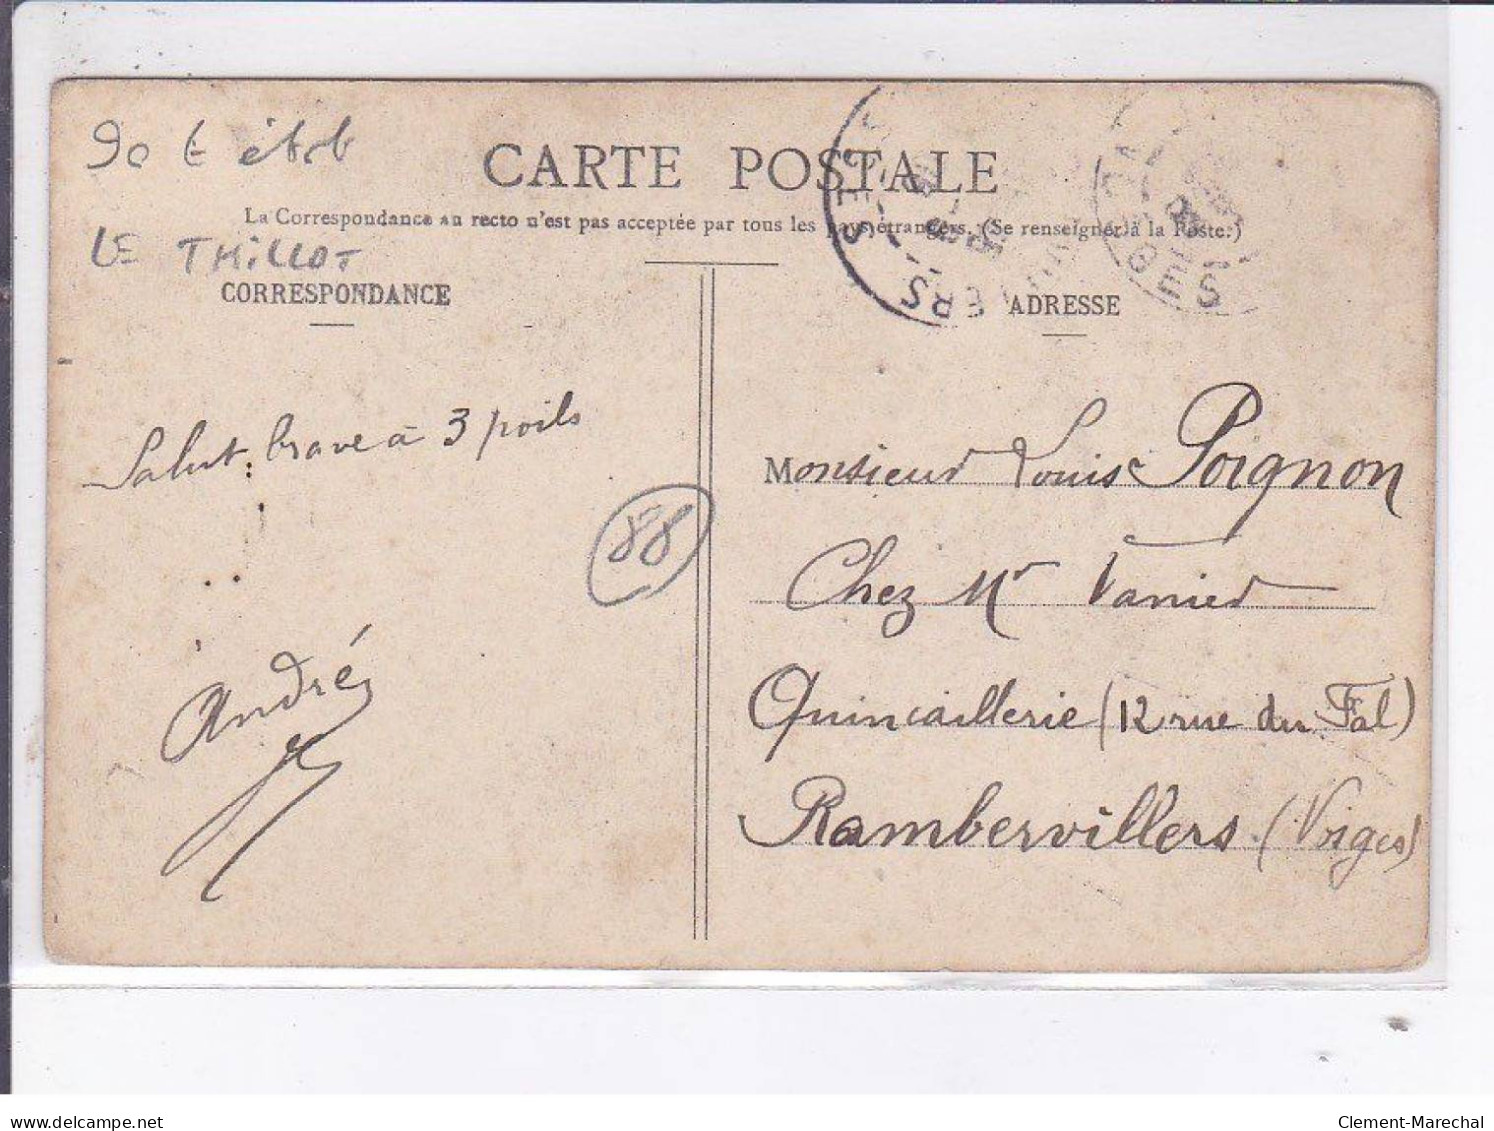 90 t état
CARTE POSTALE
La Correspondance au recto n'est pas acceptée par tous les pays étrangers. (Se renseigner à la Poste.)
LE THiLLOT
CORRESPONDANCE
ADRESSE
ERS
GES
Salut, brave à 3 poils
Monsieur Louis Poignon
88
Chez Mr Vanier
André
Quincaillerie (12 rue du Fal)
Rambervillers (Vosges)
delcampe.net
Clement-Marechal